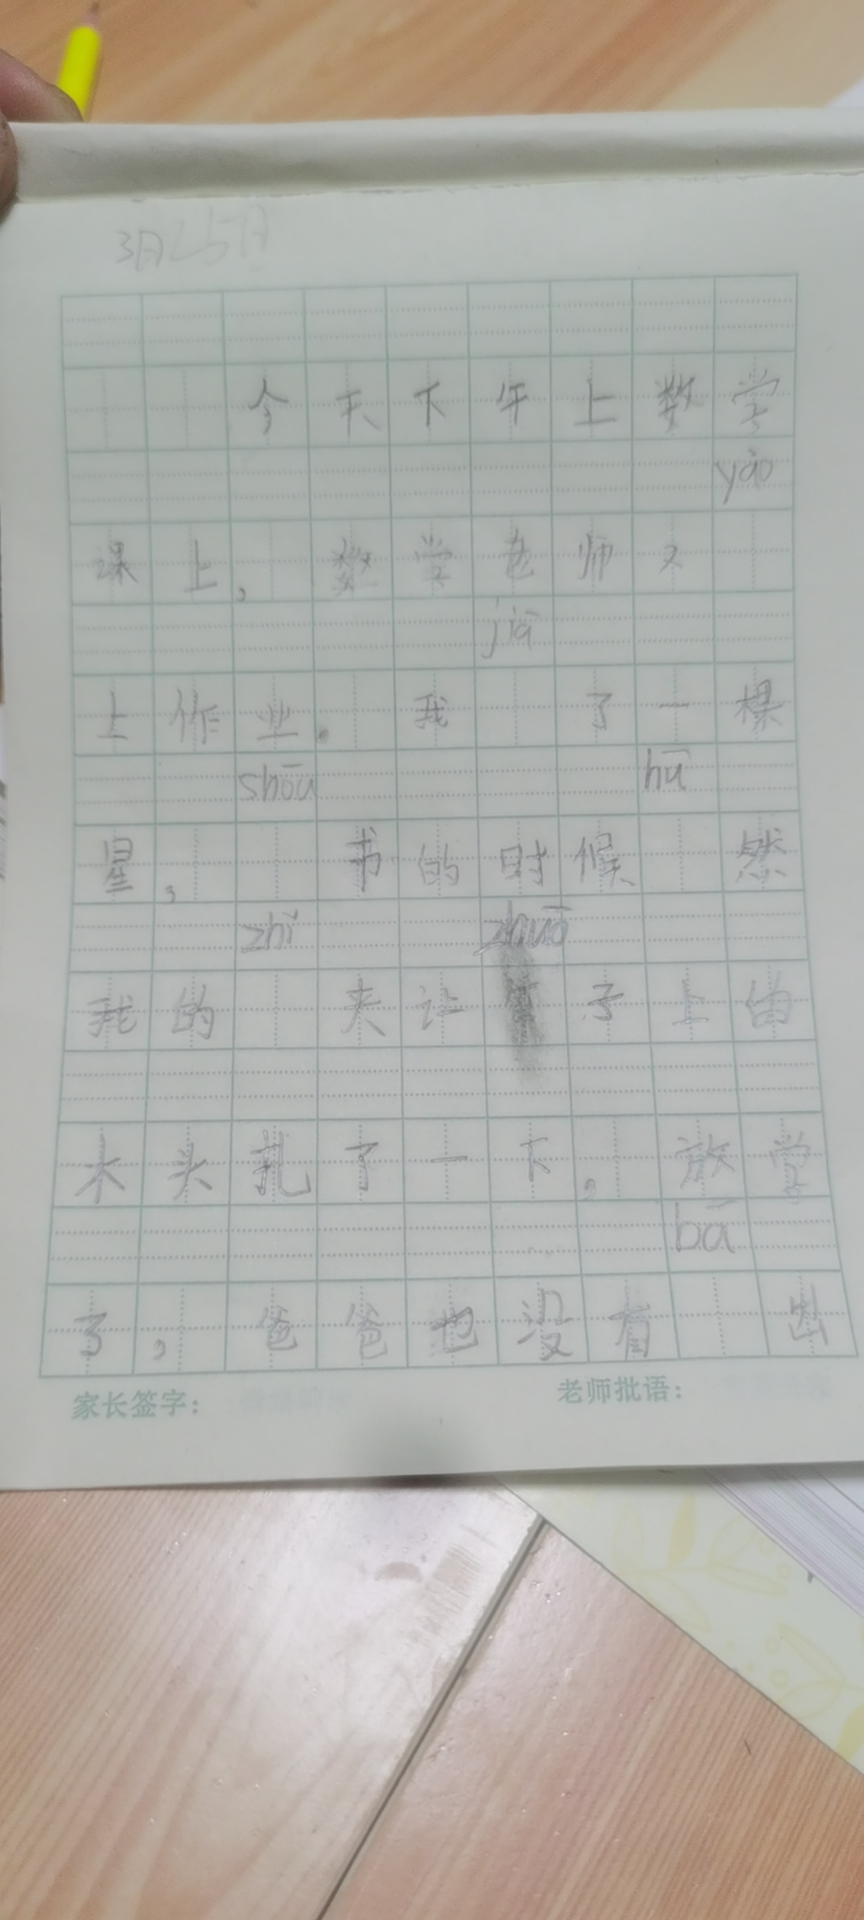 3月25日
今天下午上数学
yào
课上，数学老师又
jiā
上作业。我 了一棵
shōu hū
星，书的时候 然
zhǐ zhuō
我的 夹让 子上的
木头扎了一下，放学
bā
了，爸爸也没有 出
家长签字： 老师批语：